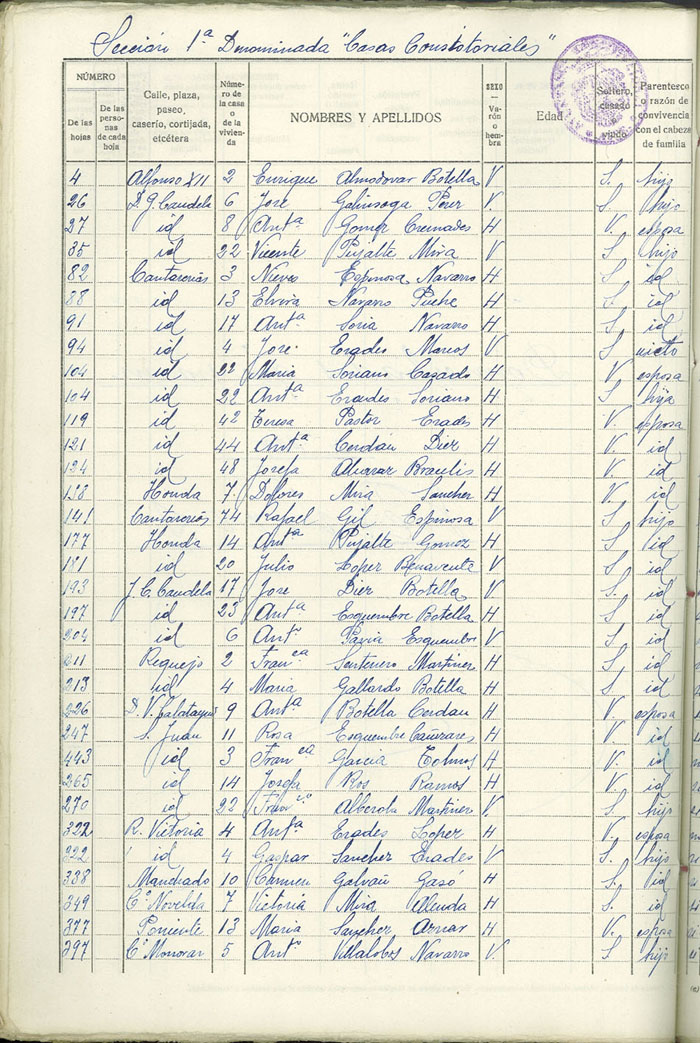 Sección 1ª Denominada "Casas Consistoriales"
NÚMERO
De las hojas
De las personas de cada hoja
Calle, plaza, paseo, caserío, cortijada, etcétera
Número de la casa o de la vivienda
NOMBRES Y APELLIDOS
SEXO — Varón o hembra
Edad
Soltero, casado viudo
Parentesco o razón de convivencia con el cabeza de familia
4 Alfonso XII 2 Enrique Almodovar Botella V S. hijo
26 6 Jose Galinsoga Perez V S. hijo
27 id 8 Antª Gomez Cremades H V. esposa
35 id 22 Vicente Pujalte Mira V S hijo
82 Cantarerias 3 Nieves Espinosa Navarro H S id
88 id 13 Elvira Navarro Puche H S id
91 id 17 Antª Soria Navarro H S id
94 id 4 Jose Erades Marcos V S nieto
104 id 22 Maria Soriano Casado H V esposa
104 id 22 Antª Erades Soriano H S hija
119 id 42 Teresa Pastor Erades H V. esposa
121 id 44 Antª Cerdan Diez H V. id
124 id 48 Josefa Alcaraz Braulis H V id
138 Honda 7 Dolores Mira Sanchez H V. id
141 Cantarerias 74 Rafael Gil Espinosa V S. hijo
177 Honda 14 Antª Pujalte Gomez H S id
181 id 20 Julio Lopez Benavente V S. id
193 J. C. Candela 17 Jose Diez Botella V S. id
197 id 23 Antª Esquembre Botella H S id
204 id 6 Antº Pavia Esquembre V S. id
211 Requejo 2 Franca Santonero Martinez H S. id
213 id 4 Maria Gallardo Botella H S id
226 D. V. Calatayud 9 Antª Botella Cerdan H V. esposa
247 S. Juan 11 Rosa Esquembre Cañizares H V. id
443 id 3 Franca Garcia Tolmos H V. id
265 id 14 Josefa Ros Ramos H V. id
270 id 22 Franco Alberola Martinez V. S. hijo
322 R. Victoria 4 Antª Erades Lopez H V. esposa
322 id 4 Gaspar Sanchez Erades V S. hijo
338 Mandrado 10 Carmen Galvañ Gasó H S. id
349 Cº Novelda 7 Victoria Mira H S. id
377 Poniente 13 Maria Sanchez Aznar H V. esposa
397 Cº Monovar 5 Antº Villalobos Navarro V. S hijo